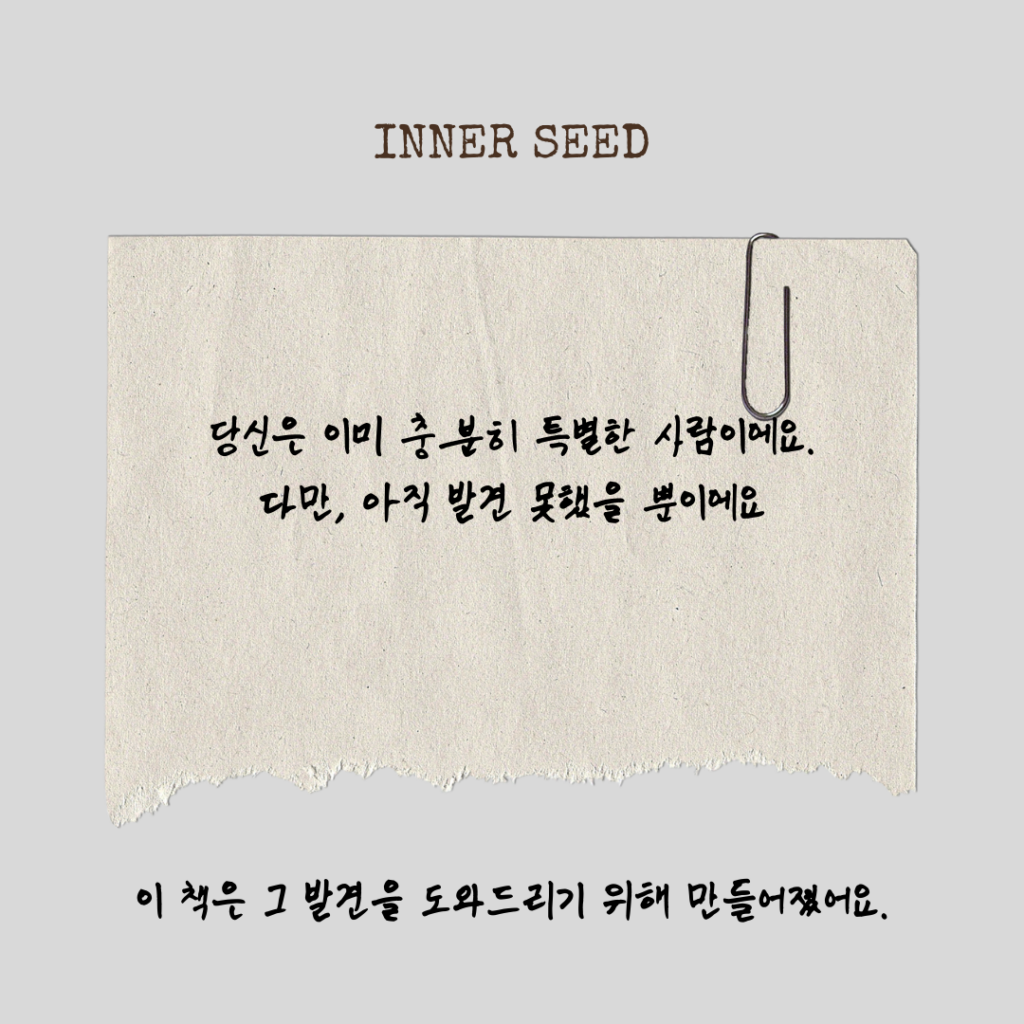 INNER SEED
당신은 이미 충분히 특별한 사람이에요.
다만, 아직 발견 못했을 뿐이에요
이 책은 그 발견을 도와드리기 위해 만들어졌어요.